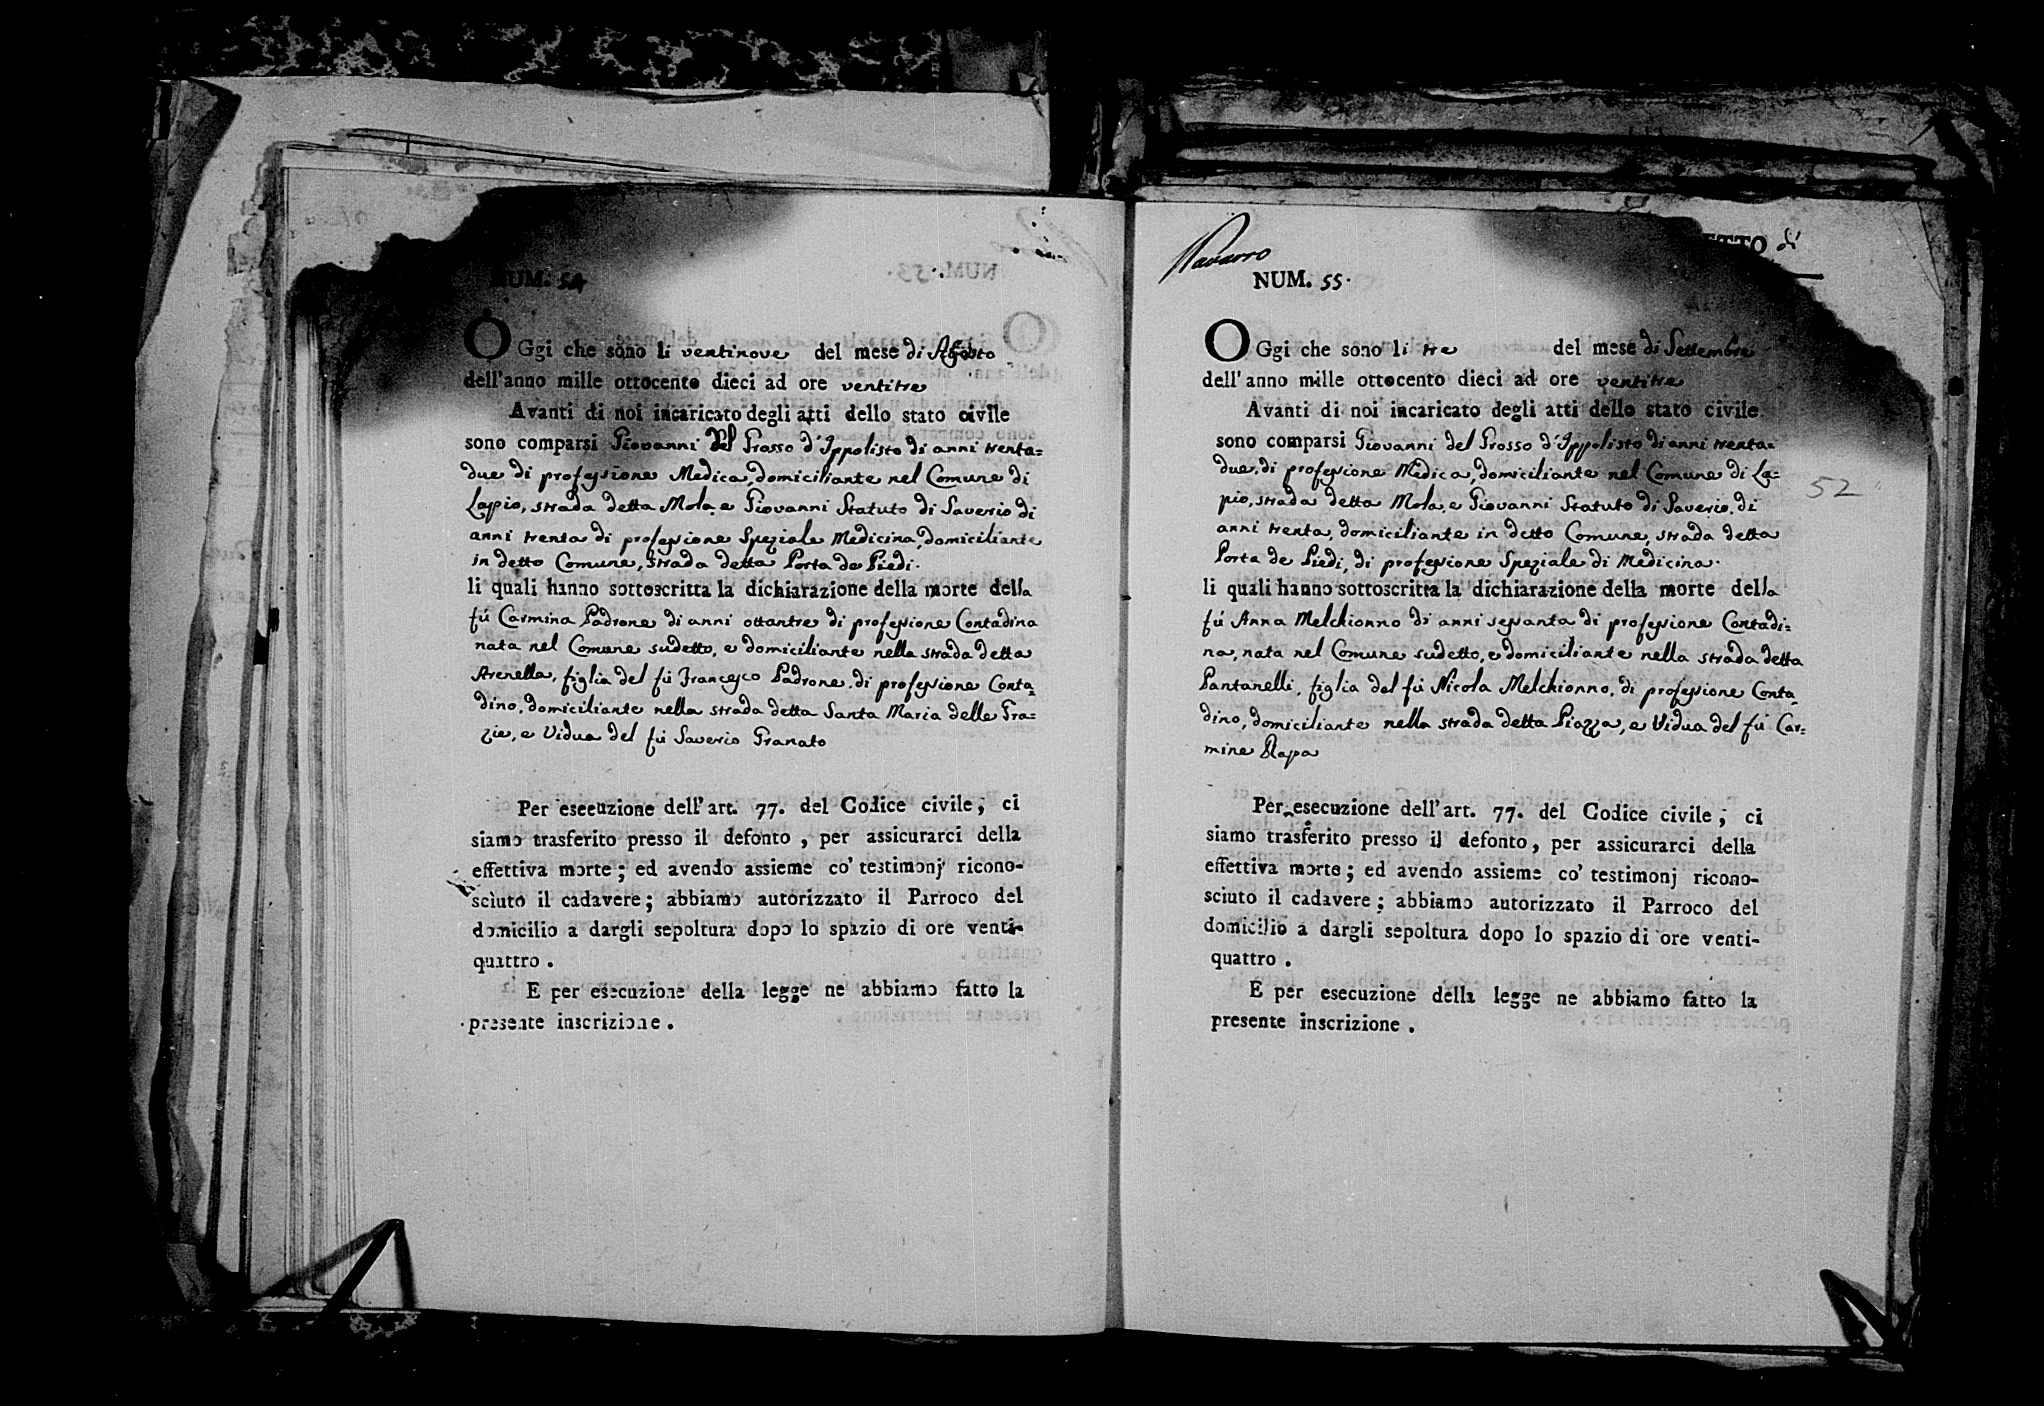 NUM. 54
OGgi che sono li ventinove del mese di Agosto
dell'anno mille ottocento dieci ad ore ventitre
Avanti di noi incaricato degli atti dello stato civile
sono comparsi Giovanni del Grosso d'Ippolisto di anni trenta=
due di professione Medica, domiciliante nel Comune di
Lapio, strada detta Mola, e Giovanni Statuto di Saverio di
anni trenta di professione Speziale Medicina, domiciliante
in detto Comune, strada detta Porta de Piedi.
li quali hanno sottoscritta la dichiarazione della morte della
fú Carmina Padrone di anni ottantre di professione Contadina
nata nel Comune sudetto, e domiciliante nella strada detta
Arenella, figlia del fú Francesco Padrone, di professione Conta=
dino, domiciliante nella strada detta Santa Maria delle Gra=
zie, e Vidua del fú Saverio Granato
Per esecuzione dell'art. 77. del Codice civile, ci
siamo trasferito presso il defonto, per assicurarci della
effettiva morte; ed avendo assieme co' testimonj ricono-
sciuto il cadavere; abbiamo autorizzato il Parroco del
domicilio a dargli sepoltura dopo lo spazio di ore venti-
quattro.
E per esecuzione della legge ne abbiamo fatto la
presente inscrizione.
Navarro
ETTO di
NUM. 55.
OGgi che sono li tre del mese di Settembre
dell'anno mille ottocento dieci ad ore ventitre
Avanti di noi incaricato degli atti dello stato civile
sono comparsi Giovanni del Grosso d'Ippolisto di anni trenta=
due, di professione Medica, domiciliante nel Comune di La=
pio, strada detta Mola, e Giovanni Statuto di Saverio, di
anni trenta, domiciliante in detto Comune, strada detta
Porta de Piedi, di professione Speziale di Medicina.
li quali hanno sottoscritta la dichiarazione della morte della
fú Anna Melchionno di anni sessanta di professione Contadi=
na, nata nel Comune sudetto, e domiciliante nella strada detta
Pantanelli, figlia del fú Nicola Melchionno, di professione Conta=
dino, domiciliante nella strada detta Piazza, e Vidua del fú Car=
mine Rapa
52
Per esecuzione dell'art. 77. del Codice civile, ci
siamo trasferito presso il defonto, per assicurarci della
effettiva morte; ed avendo assieme co' testimonj ricono-
sciuto il cadavere; abbiamo autorizzato il Parroco del
domicilio a dargli sepoltura dopo lo spazio di ore venti-
quattro.
E per esecuzione della legge ne abbiamo fatto la
presente inscrizione.